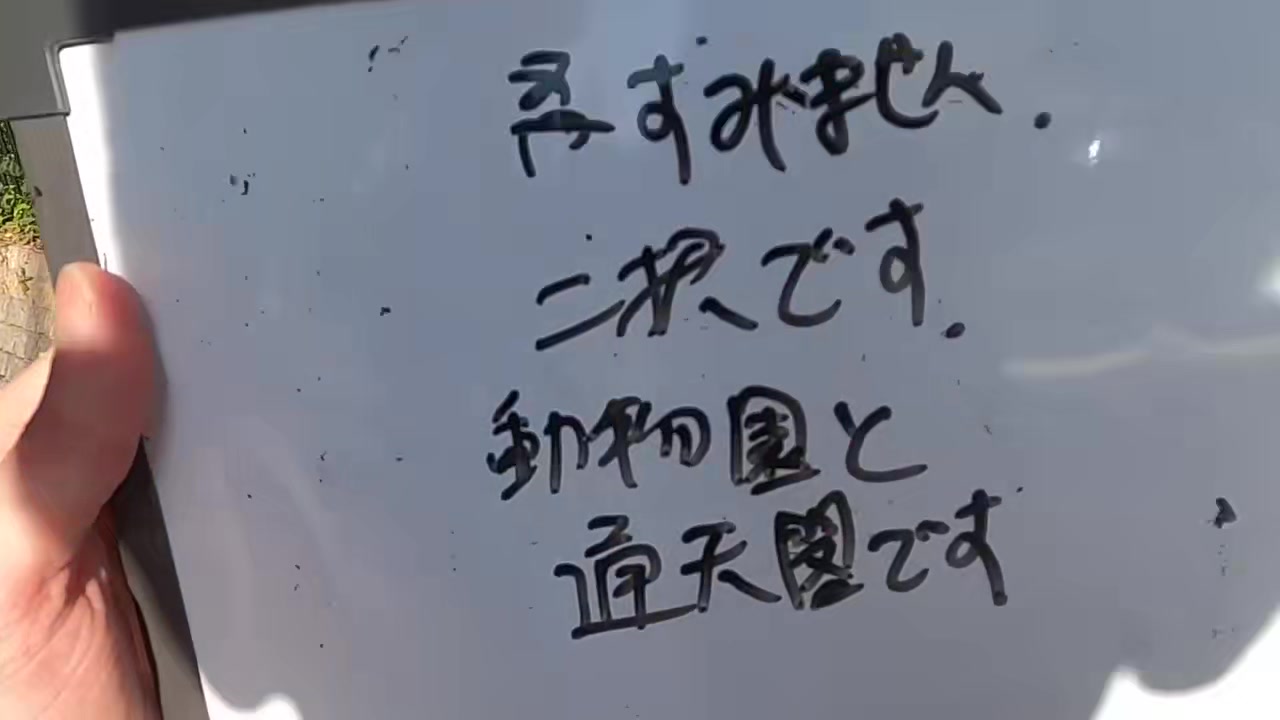 すみません.
二択です.
動物園と
通天閣です